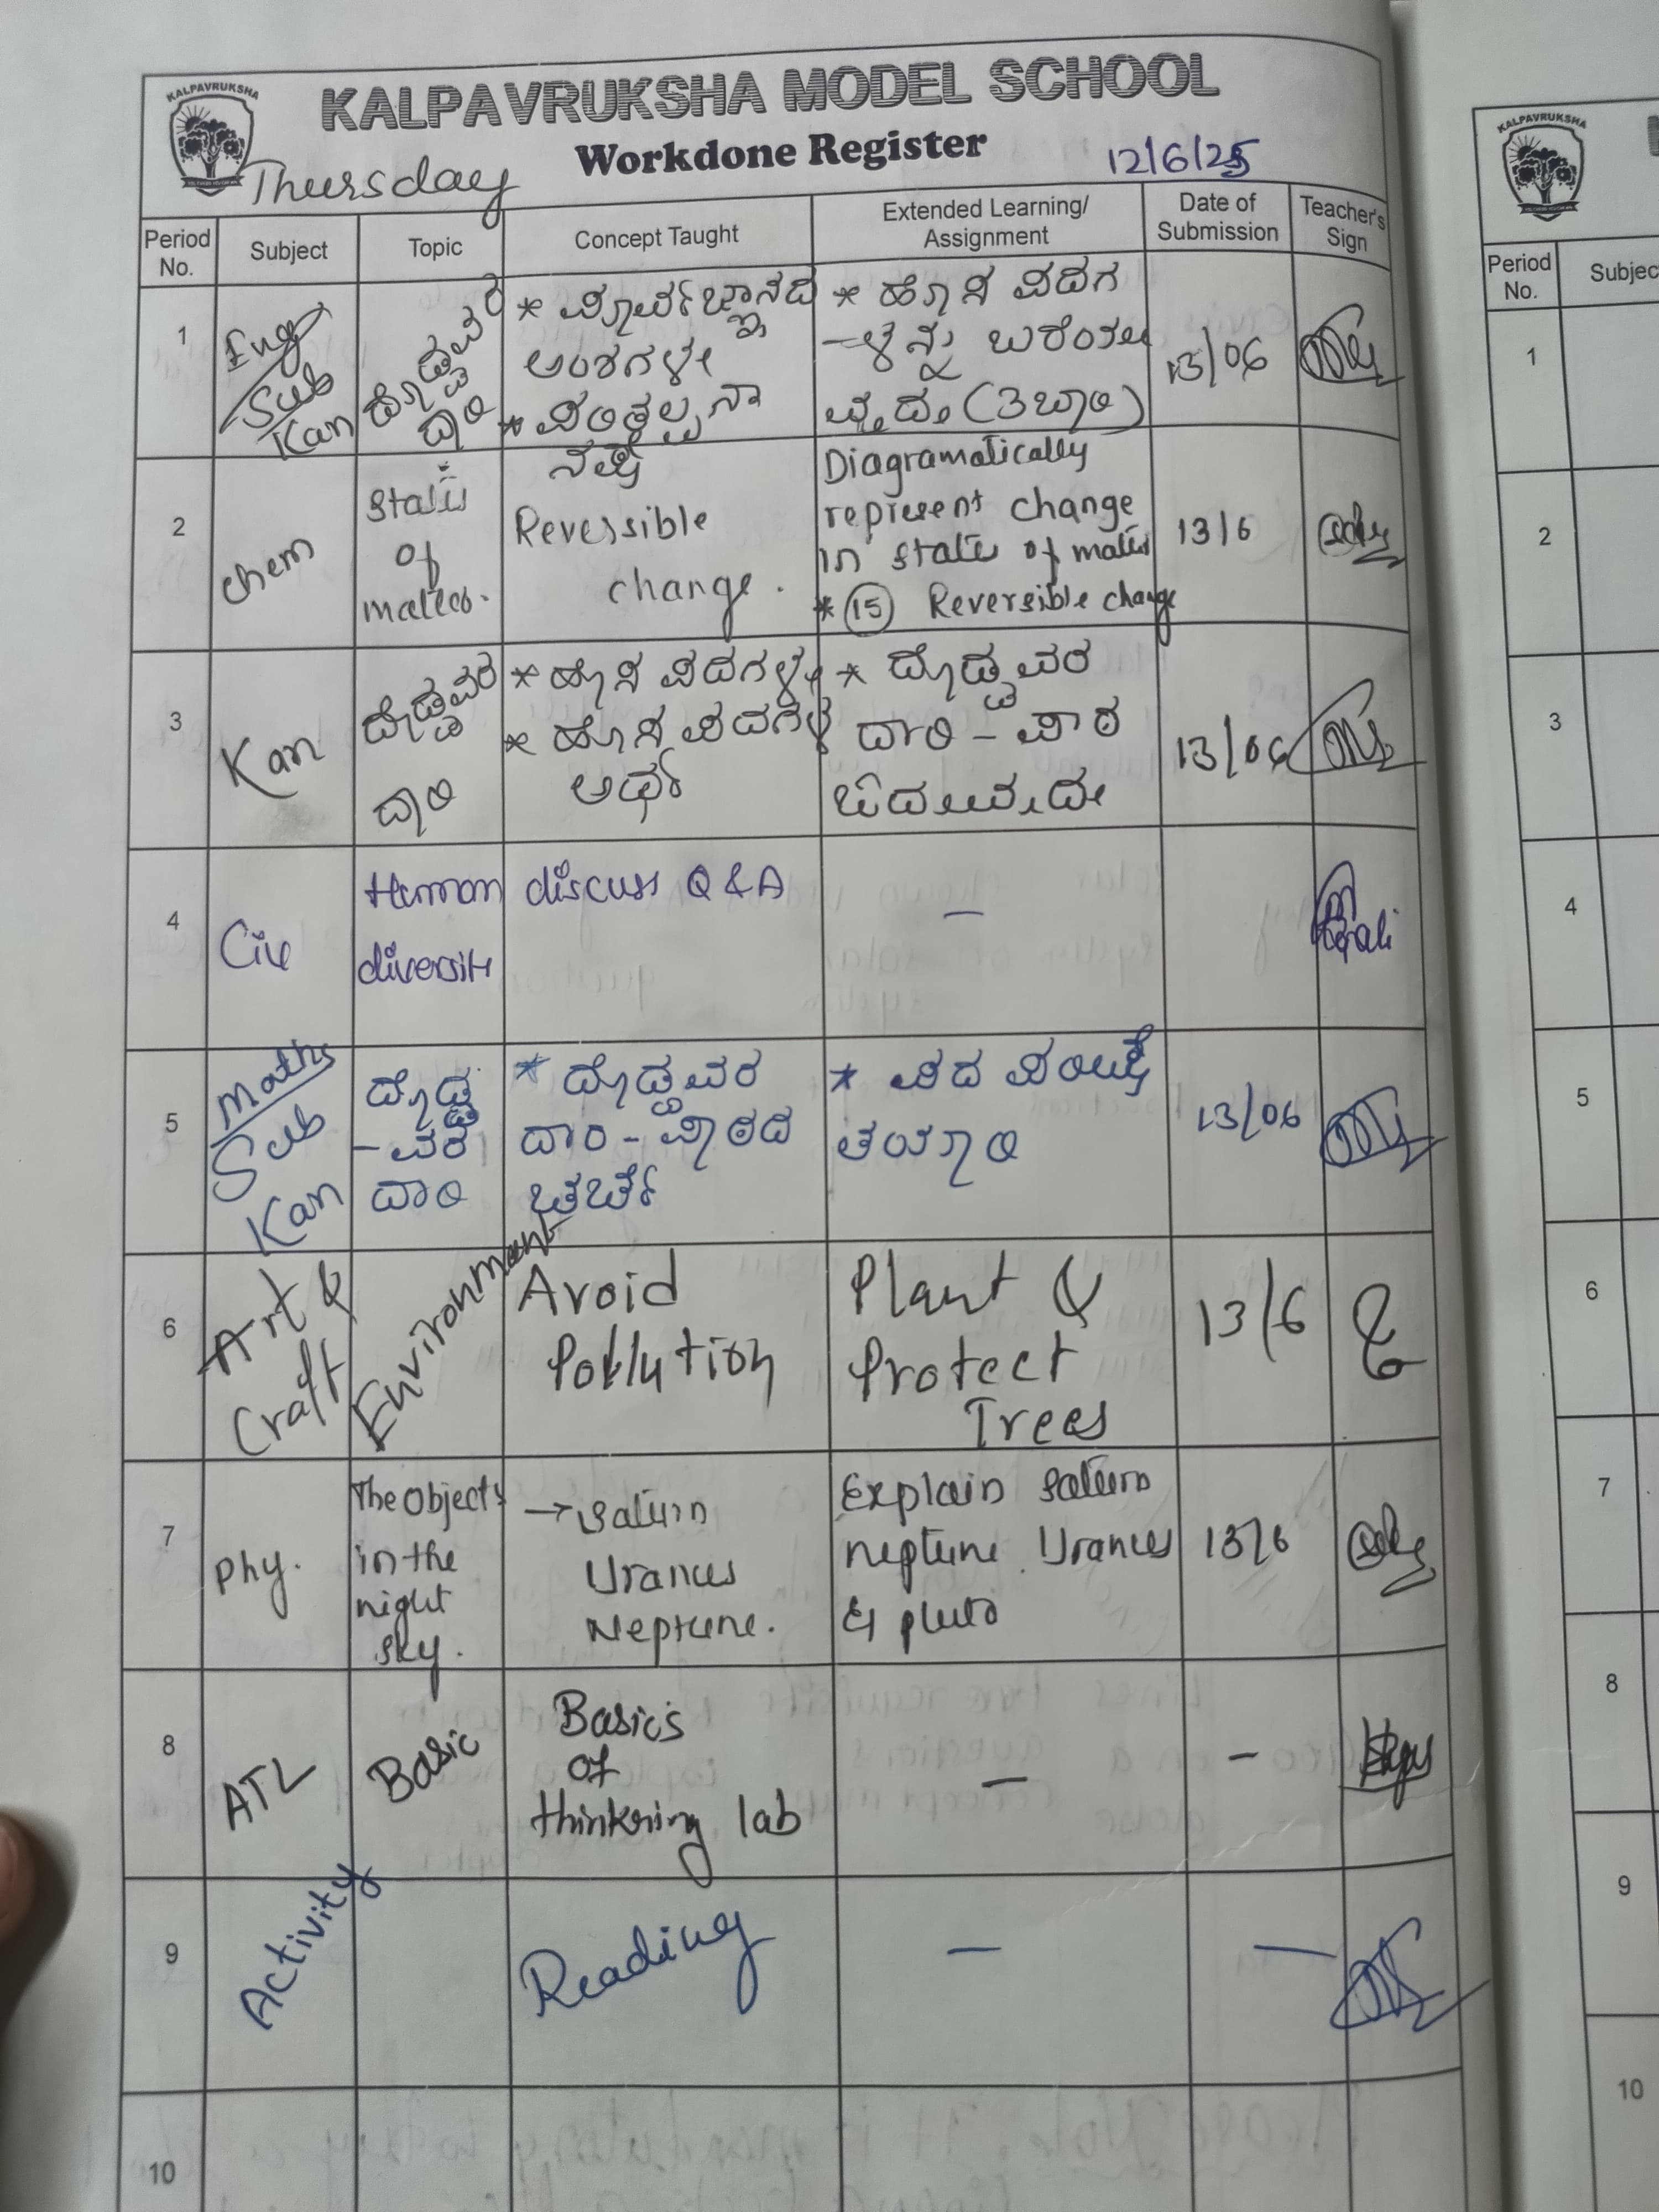 KALPAVRUKSHA
KALPAVRUKSHA MODEL SCHOOL
Workdone Register
Thursday
12/6/25
Period No.
Subject
Topic
Concept Taught
Extended Learning/
Assignment
Date of
Submission
Teacher's
Sign
1
Eng
Sub
Kan
ದೊಡ್ಡವರ
ದಾರಿ
* ಪೂರ್ವಜ್ಞಾನದ
ಅಂಶಗಳು
* ಪರಿಕಲ್ಪನಾ
ನಕ್ಷೆ
* ಹೊಸ ಪದಗ
-ಳನ್ನು
(3ಬಾರಿ)
13/06
2
Chem
States
of
matter.
Reversible
change.
Diagramatically
represent change
in state of matter
* 15 Reversible change
13/6
3
Kan
ದೊಡ್ಡವರ
ದಾರಿ
* ಹೊಸ ಪದಗಳು
* ಹೊಸ ಪದಗಳ
ಅರ್ಥ
* ದೊಡ್ಡವರ
ದಾರಿ - ಪಾಠ
ಓದುವುದು
13/06
4
Civ
Human
diversity
discuss Q & A
-
5
Maths
Sub
Kan
ದೊಡ್ಡ
-ವರ
ದಾರಿ
* ದೊಡ್ಡವರ
ದಾರಿ - ಪಾಠದ
ಚರ್ಚೆ
* ಪದ ಪರೀಕ್ಷೆ
ತಯಾರಿ
13/06
6
Art &
Craft
Environment
Avoid
Pollution
Plant &
Protect
Trees
13/6
7
Phy.
The Objects
in the
night
sky.
→ Saturn
Uranus
Neptune.
Explain saturn
neptune Uranus
& pluto
13/6
8
ATL
Basic
Basics
of
thinkering lab
-
-
9
Activity
Reading
-
-
10
KALPAVRUKSHA
Period
No.
Subjec
1
2
3
4
5
6
7
8
9
10